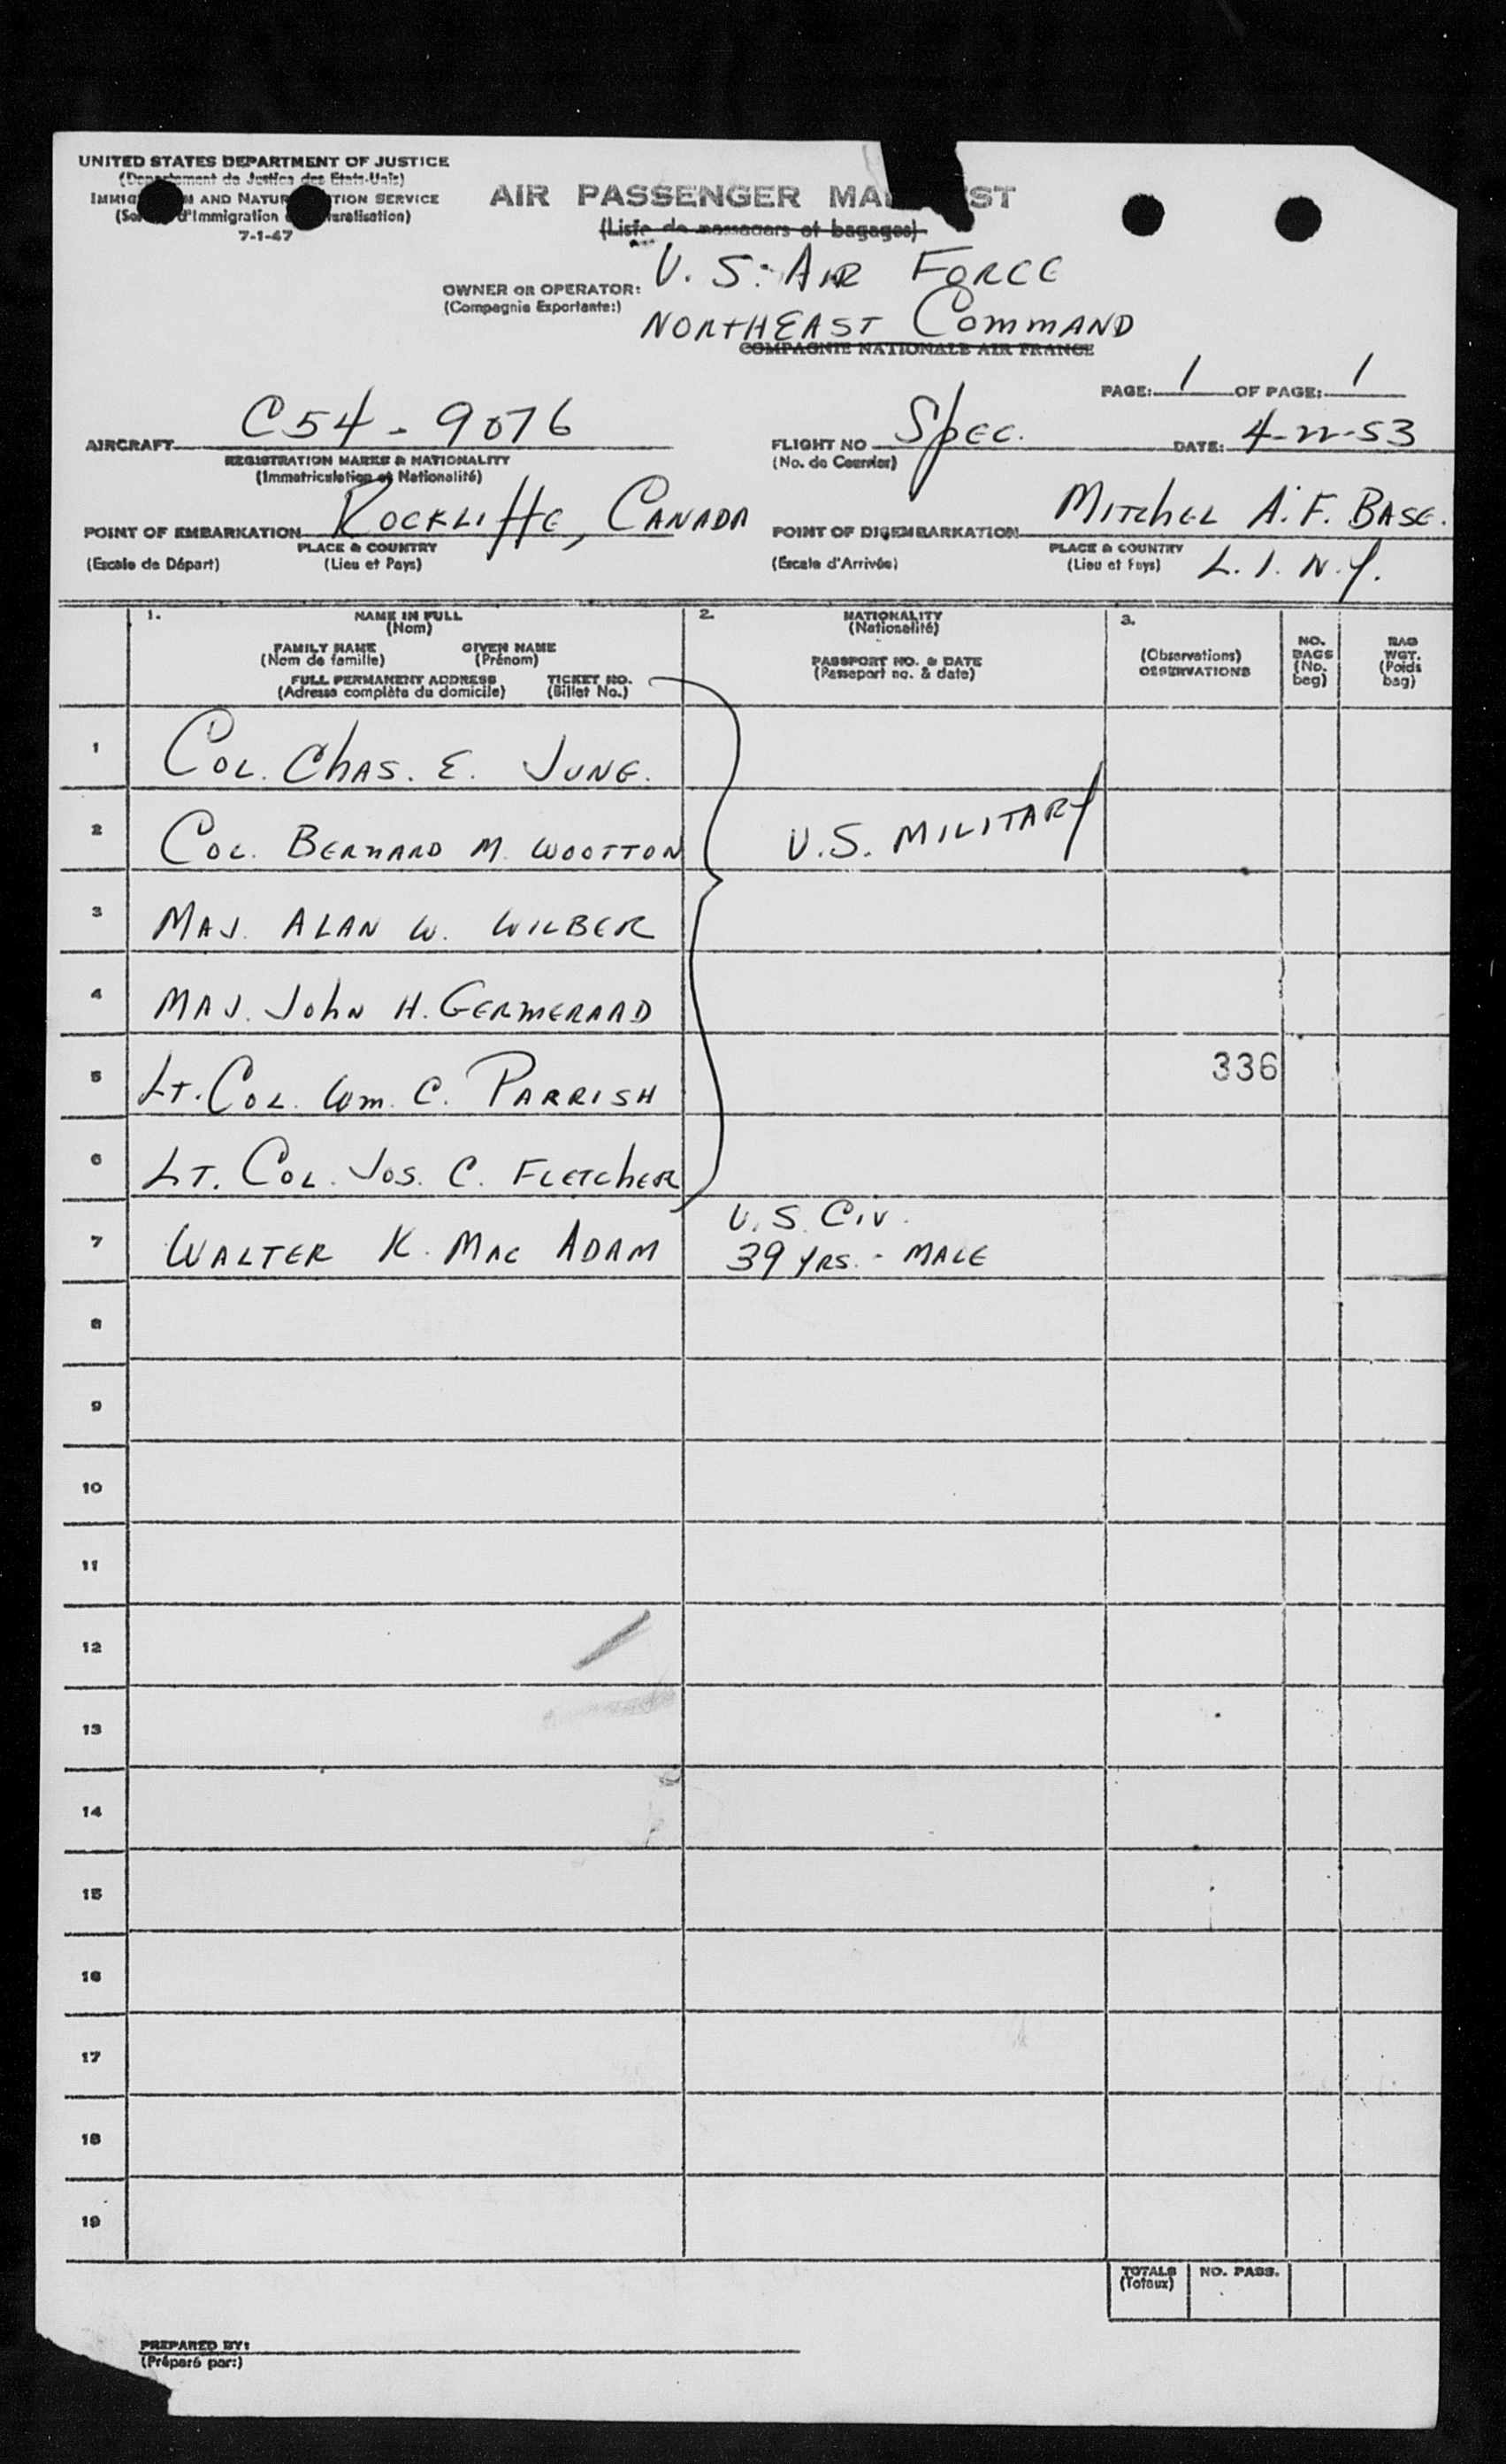 UNITED STATES DEPARTMENT OF JUSTICE
(Departement de Justice des Etats-Unis)
AND NATUR TION SERVICE
d'Immigration
7-1-47
AIR PASSENGER MA ST
(Liste de passagers et bagages)
OWNER OR OPERATOR: U. S. AIR FORCE
(Compagnie Exportante:)
NORTHEAST COMMAND
COMPAGNIE NATIONALE AIR FRANCE
PAGE: 1 OF PAGE: 1
AIRCRAFT C54 - 9076 FLIGHT NO Spec. DATE: 4-22-53
REGISTRATION MARKS & NATIONALITY (No. de Courrier)
(Immatriculation et Nationalité)
POINT OF EMBARKATION ROCKLIFFE, CANADA POINT OF DISEMBARKATION MITCHEL A.F. BASE.
PLACE & COUNTRY PLACE & COUNTRY
(Escale de Départ) (Lieu et Pays) (Escale d'Arrivée) (Lieu et Pays) L. I. N.Y.
1. NAME IN FULL 2. NATIONALITY 3.
(Nom) (Nationalité)
FAMILY NAME GIVEN NAME
(Nom de famille) (Prénom)
PASSPORT NO. & DATE
(Passeport no. & date)
FULL PERMANENT ADDRESS TICKET NO.
(Adresse complète du domicile) (Billet No.)
(Observations)
OBSERVATIONS
NO.
BAGS
(No.
bag)
BAG
WGT.
(Poids
bag)
1 COL. CHAS. E. JUNE.
2 COL. BERNARD M. WOOTTON U.S. MILITARY
3 MAJ. ALAN W. WILBER
4 MAJ. JOHN H. GERMERAAD
5 LT. COL. Wm. C. PARRISH 336
6 LT. COL. JOS. C. FLETCHER
U.S. CIV.
7 WALTER K. MAC ADAM 39 YRS. - MALE
8
9
10
11
12
13
14
15
16
17
18
19
TOTALS NO. PASS.
(Totaux)
PREPARED BY:
(Préparé par:)